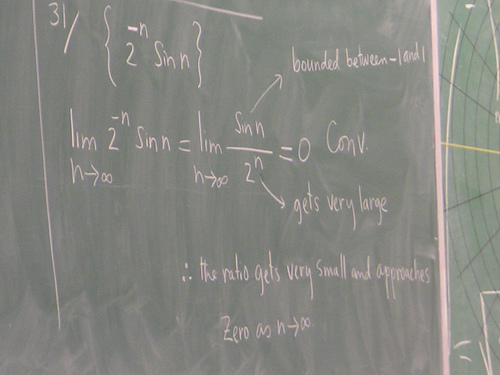 31/ { 2^-n Sin n }
bounded between -1 and 1
lim n→∞ 2^-n Sin n = lim n→∞ Sin n / 2^n = 0 Conv.
gets very large
∴ the ratio gets very small and approaches
Zero as n→∞.